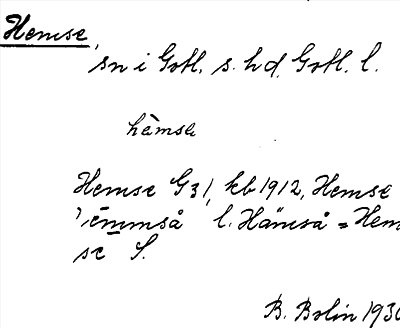 Hemse
sn i Gotl. s. hd, Gotl. l.
hämse
Hemse G31, kb 1912, Hemse
l. Hämså = Hem
se S.
B. Bolin 1930